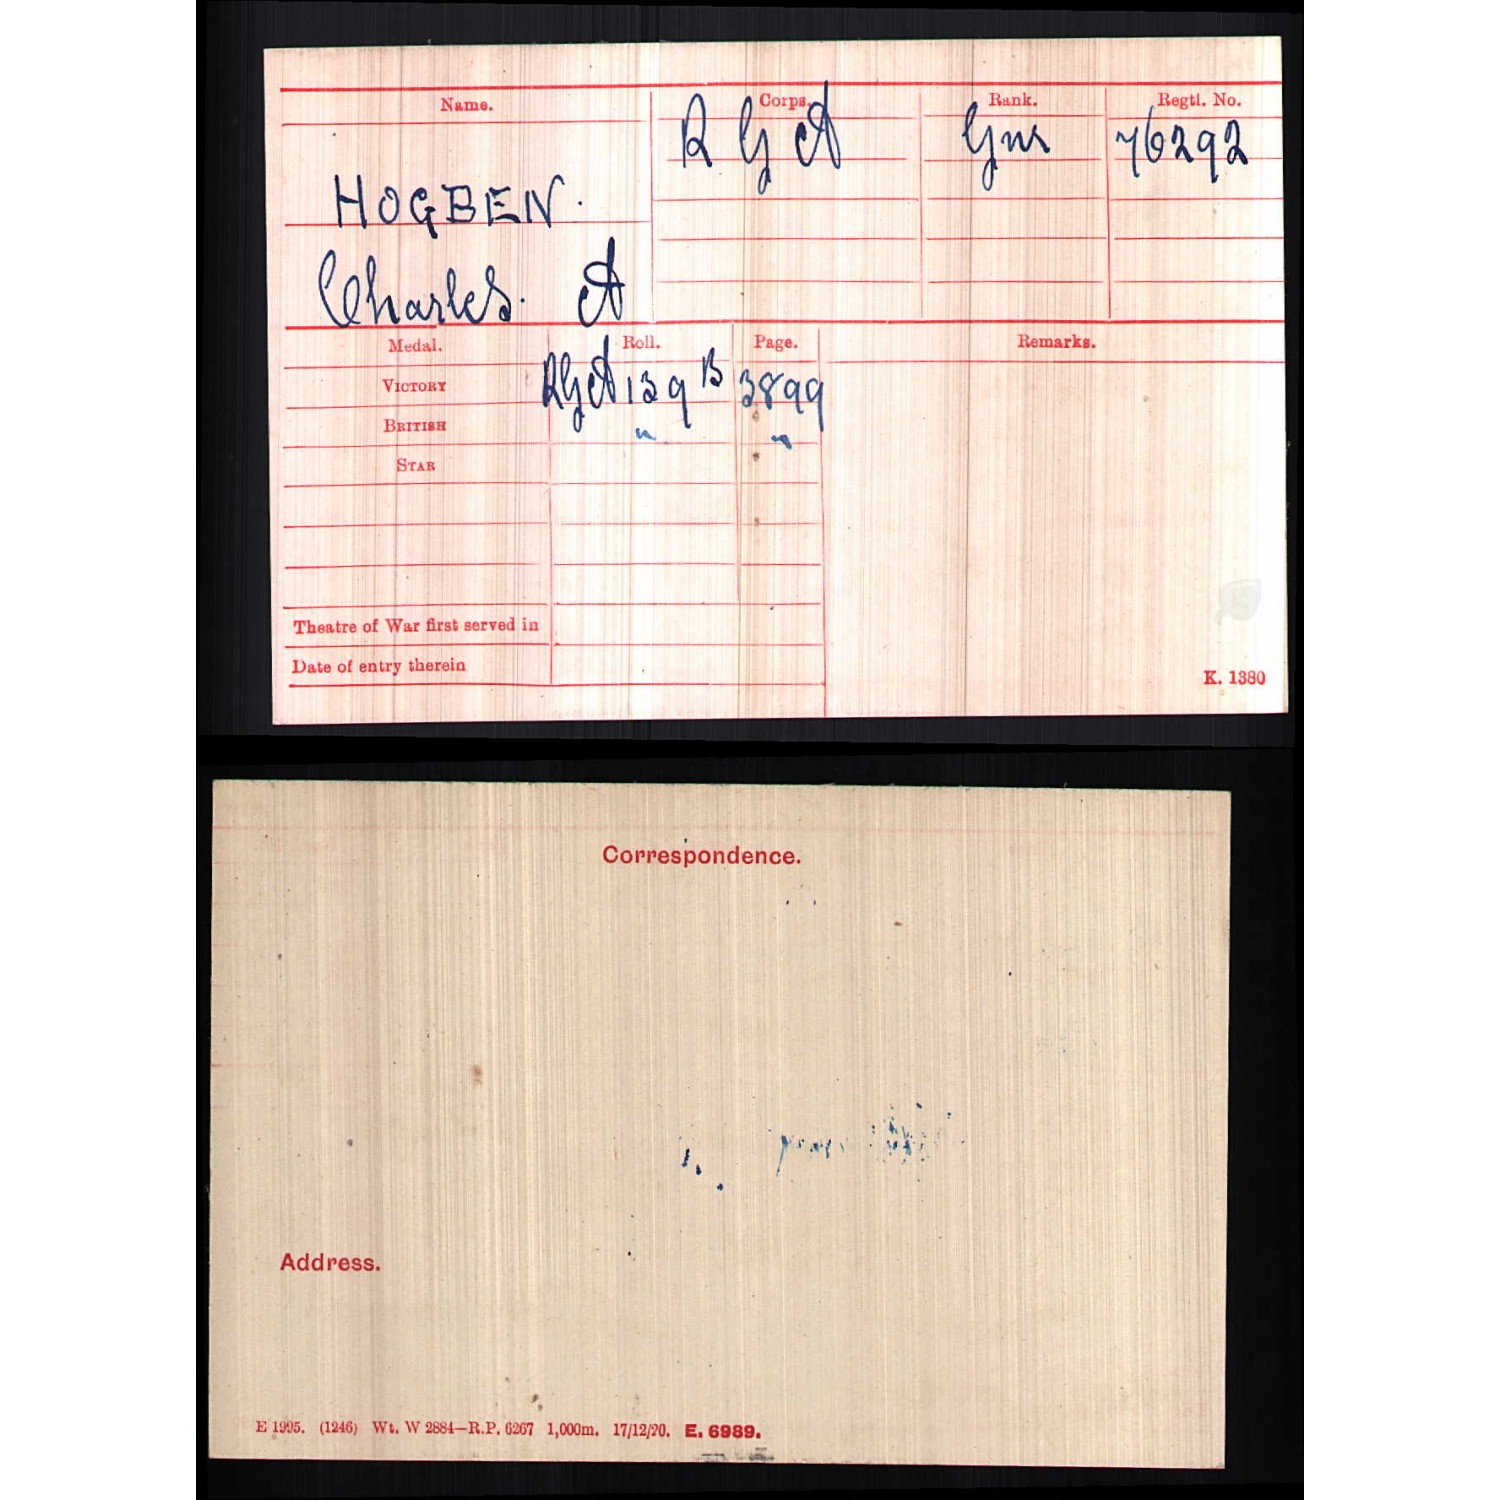 Name. Corps. Rank. Regtl. No.
R G A Gnr 76292
HOGBEN.
Charles. A
Medal. Roll. Page. Remarks.
VICTORY RGA 139 B 3899
BRITISH " "
STAR
Theatre of War first served in
Date of entry therein
K. 1380
Correspondence.
Address.
E 1995. (1246) Wt. W 2884—R.P. 6267 1,000m. 17/12/20. E. 6989.